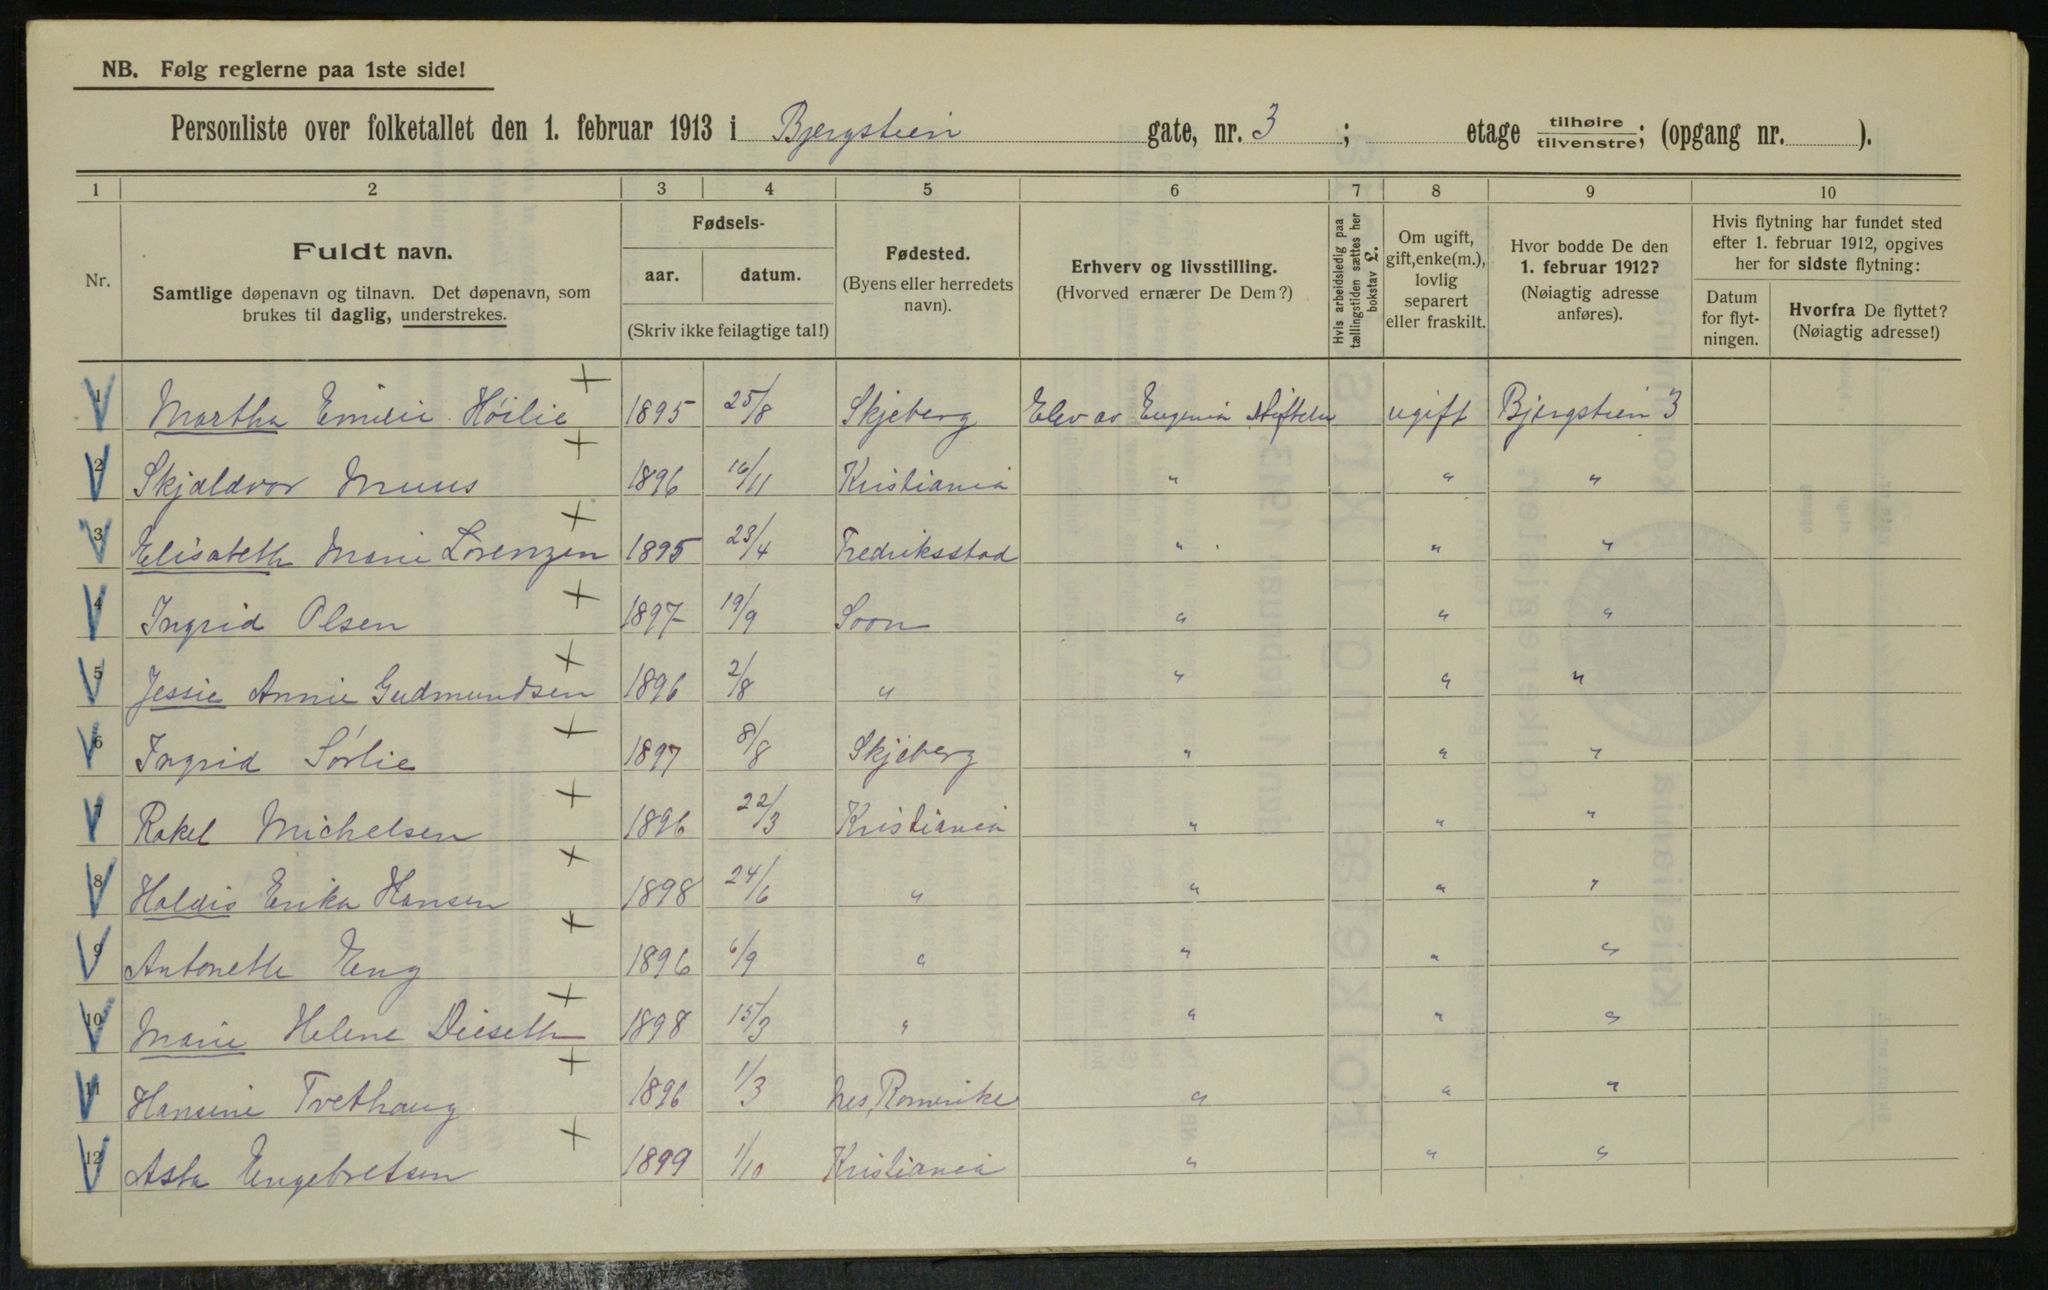 NB. Følg reglerne paa 1ste side!
Personliste over folketallet den 1. februar 1913 i Bjergstien gate, nr. 3 ; etage tilhøire tilvenstre; (opgang nr. ).
1 2 3 4 5 6 7 8 9 10
Nr.
Fuldt navn.
Samtlige døpenavn og tilnavn. Det døpenavn, som
brukes til daglig, understrekes.
Fødsels-
aar. datum.
(Skriv ikke feilagtige tal!)
Fødested.
(Byens eller herredets
navn).
Erhverv og livsstilling.
(Hvorved ernærer De Dem?)
Hvis arbeidsledig paa
tællingstiden sættes her
bokstav £.
Om ugift,
gift, enke(m.),
lovlig
separert
eller fraskilt.
Hvor bodde De den
1. februar 1912?
(Nøiagtig adresse
anføres).
Hvis flytning har fundet sted
efter 1. februar 1912, opgives
her for sidste flytning:
Datum
for flyt-
ningen.
Hvorfra De flyttet?
(Nøiagtig adresse!)
1 Martha Emilie Höilie 1895 25/8 Skjeberg Elev av Eugenia Stiftelse ugift Bjergstien 3
2 Skjaldvor Muus 1896 16/11 Kristiania " " "
3 Elisabeth Marie Lorenzen 1895 23/4 Fredriksstad " " "
4 Ingrid Olsen 1897 19/9 Soon " " "
5 Jessie Annie Gudmundsen 1896 2/8 " " " "
6 Ingrid Sörlie 1897 8/8 Skjeberg " " "
7 Rakel Michelsen 1896 22/3 Kristiania " " "
8 Haldis Erika Hansen 1898 24/6 " " " "
9 Antonette Eng 1896 6/9 " " " "
10 Marie Helene Dieseth 1898 15/3 " " " "
11 Hansine Tvethaug 1896 1/3 Nes, Romerike " " "
12 Asta Engebretsen 1899 1/10 Kristiania " " "